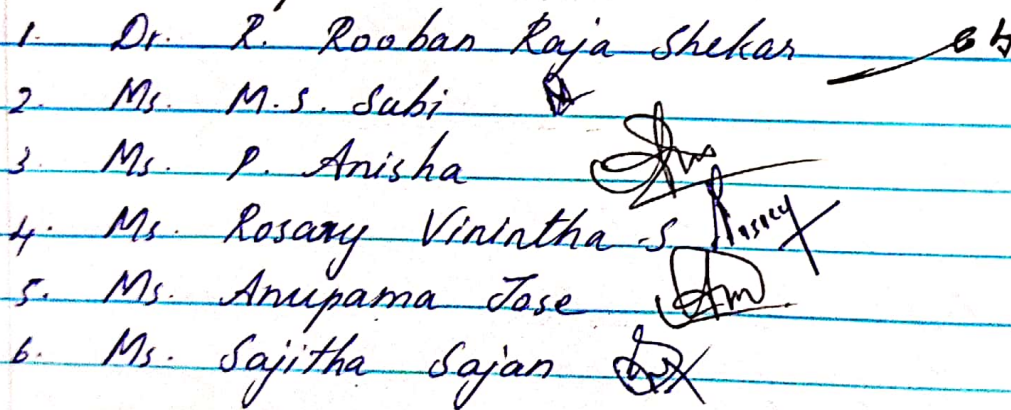 1. Dr. R. Rooban Raja Shekar
2. Ms. M.S. Subi
3. Ms. P. Anisha
4. Ms. Rosary Vinintha .S Rosary
5. Ms. Anupama Jose
6. Ms. Sajitha Sajan